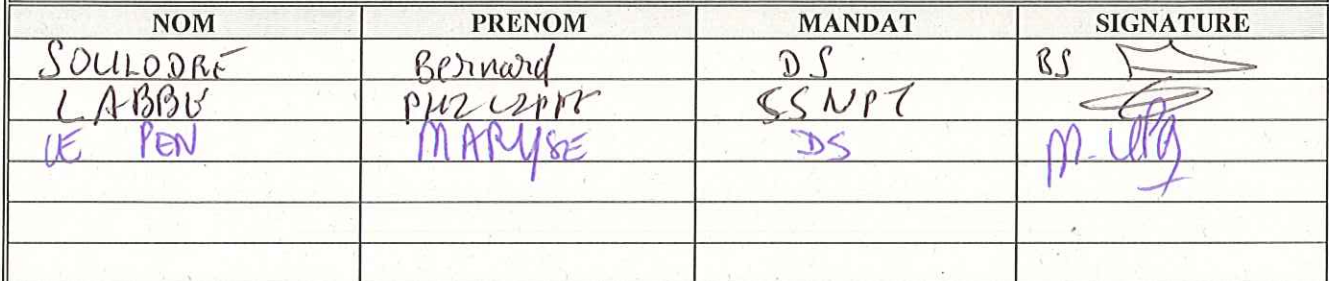 NOM PRENOM MANDAT SIGNATURE
SOULODRE Bernard DS BS
LABBÉ PHILIPPE SSNPT
LE PEN MARYSE DS